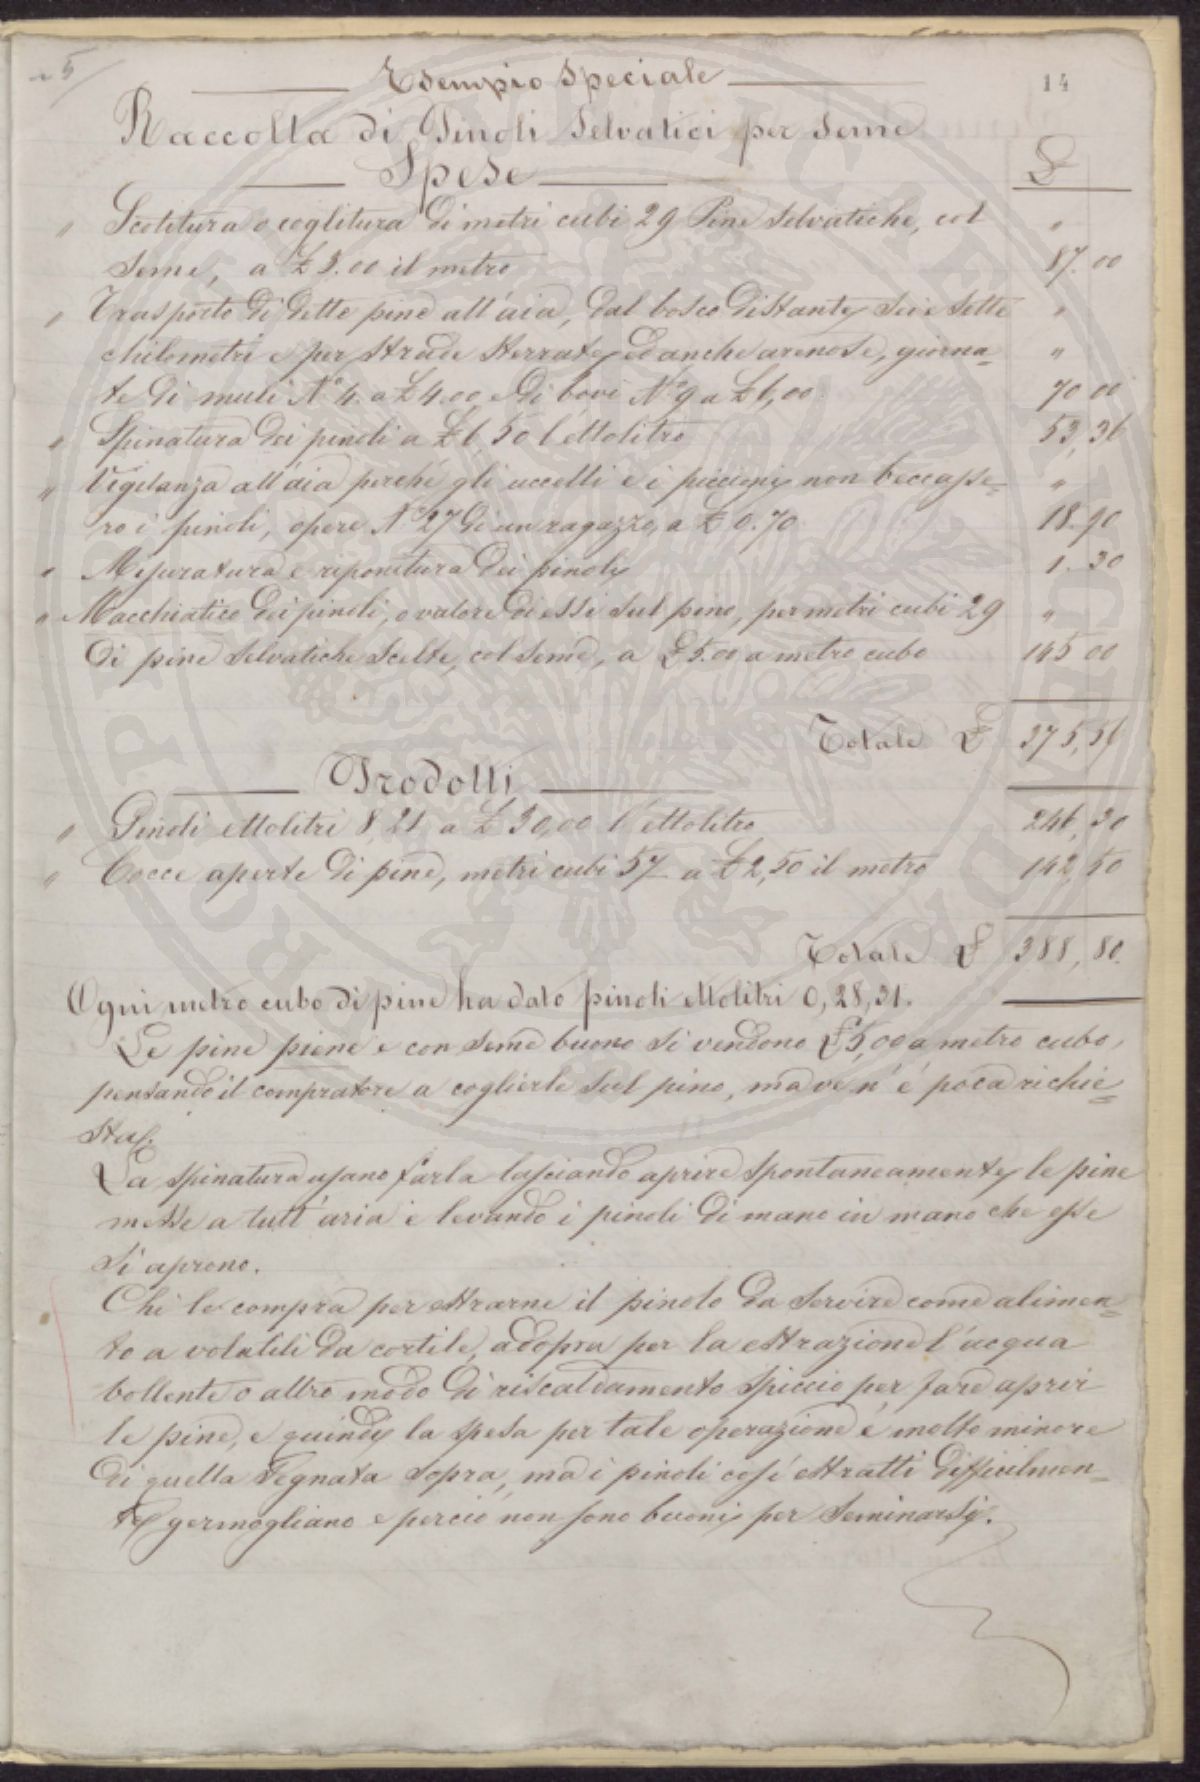 n 5
14
Esempio Speciale
Raccolta di Pinoli Selvatici per Seme
Spese
£
" Scelitura o coglitura di metri cubi 29 Pine Selvatiche, col "
Seme, a £ 3.00 il metro 87.00
" Trasporto di dette pine all'aia, dal bosco distante sei e sette "
chilometri e per strade sterrate, ed anche arenose, giorna- "
te di muli N° 4. a £ 4.00 e di bovi N° 9 a £ 6,00. 70 00
" Spinatura dei pinoli a £ 6,50 l'ettolitro 53,36
" Vigilanza all'aia perché gli uccelli e i piccioni non beccasse= "
ro i pinoli, opere N° 27 di un ragazzo, a £ 0.70 18.90
" Misuratura e riponitura dei pinoli 1.30
" Macchiatico dei pinoli, o valore di essi sul pino, per metri cubi 29 "
di pine selvatiche scelte, col seme, a £ 5.00 a metro cubo 145 00
Totale £ 375,56
Prodotti
" Pinoli ettolitri 8,21 a £ 30,00 l'ettolitro 246,30
" Cocce aperte di pine, metri cubi 57 a £ 2,50 il metro 142,50
Totale £ 388,80.
Ogni metro cubo di pine ha dato pinoli ettolitri 0,28,31.
Le pine piene e con seme buono si vendono £ 5,00 a metro cubo,
pensando il compratore a coglierle sul pino, ma ve n'é poca richie=
sta.
La spinatura usano farla lasciando aprire spontaneamente le pine
messe a tutt'aria e levando i pinoli di mano in mano che esse
si aprono.
Chi le compra per estrarne il pinolo da servire come alimen=
to a volatili da cortile, adopra per la estrazione l'acqua
bollente o altro modo di riscaldamento spiccio per fare aprir
le pine, e quindi la spesa per tale operazione é molto minore
di quella segnata sopra, ma i pinoli cosí estratti difficilmen=
te germogliano e perció non sono buoni per seminarsi.